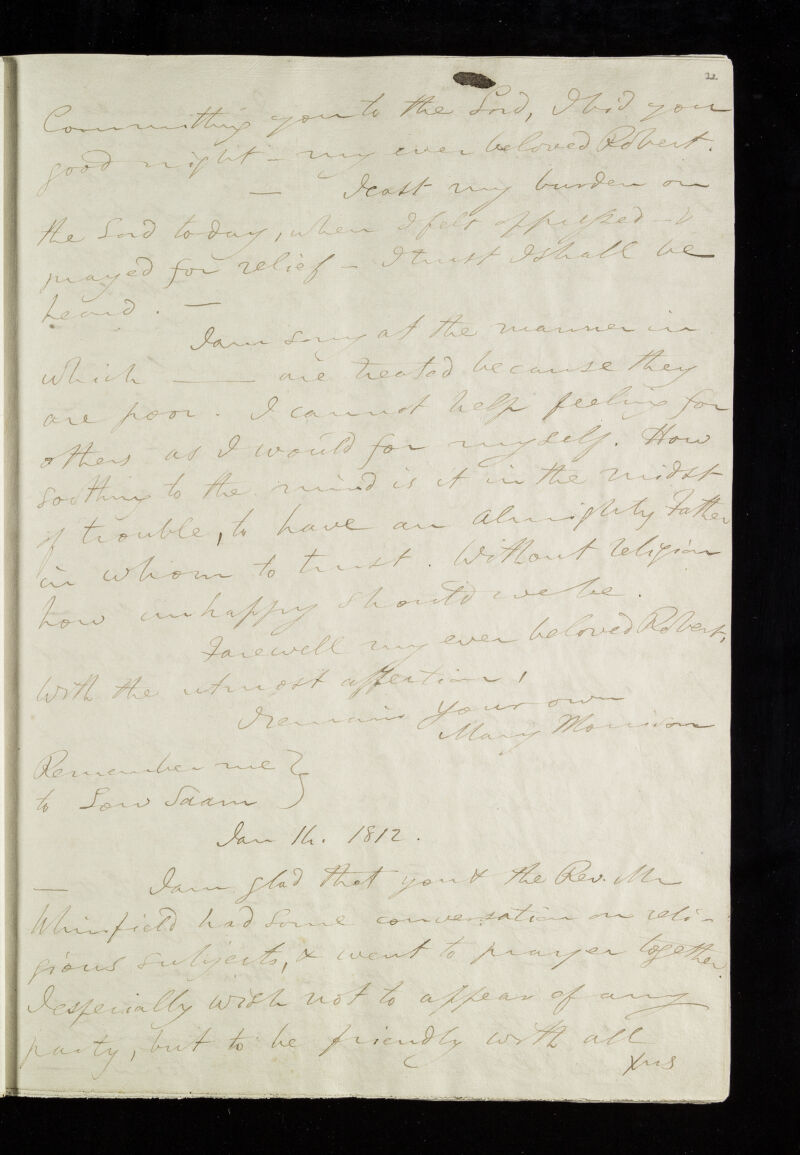 22.
Committing you to the Lord, I bid you
good night – my ever beloved Robert.
— I cast my burden on
the Lord today, when I felt oppressed – &
prayed for relief – I trust I shall be
heard. —
I am sorry at the manner in
which —— are treated because they
are poor. I cannot help feeling for
others as I would for myself. How
soothing to the mind is it in the midst
of trouble, to have an Almighty Father
in whom to trust. Without religion
how unhappy should we be.
Farewell my ever beloved Robert,
With the utmost affection,
I remain your own
Mary Morrison
Remember me }
to Low Saam }
Jan 14. 1812.
— I am glad that you & the Rev. Mr
Whinfield had some conversation on reli-
gious subjects, & went to prayer together.
I especially wish not to appear of any
party, but to be friendly with all
Xns